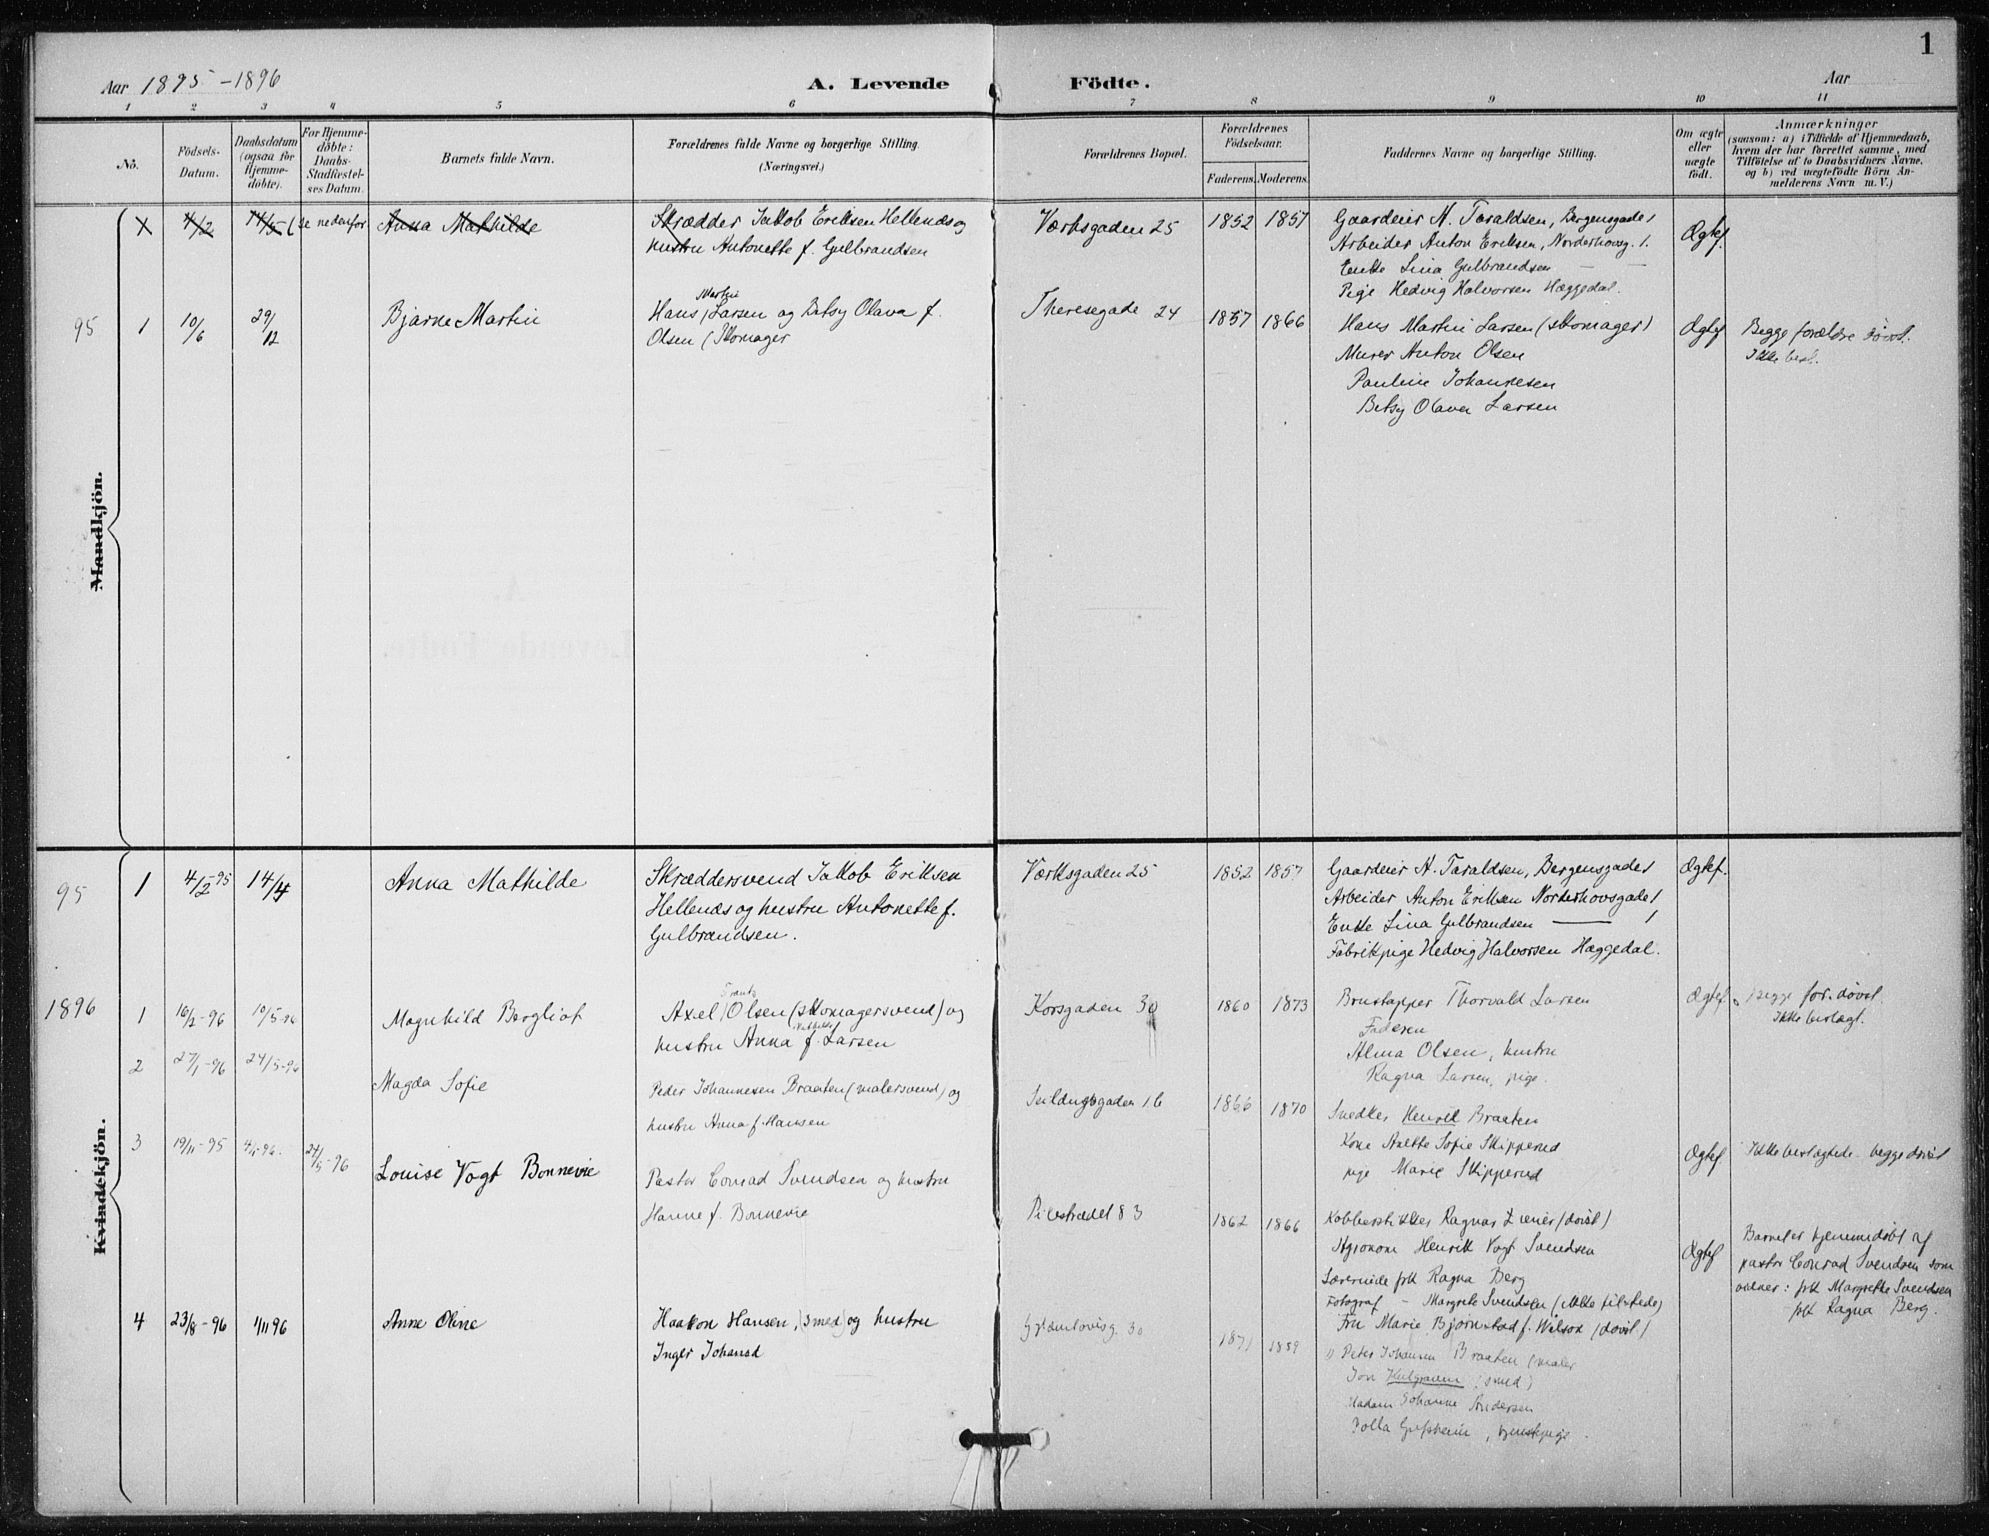 1
Aar 1895-1896 A. Levende Födte. Aar
1 2 3 4 5 6 7 8 9 10 11
Nö.
Födsels-
Datum.
Daabsdatum
(ogsaa för
Hjemme-
döbte).
For Hjemme-
döbte:
Daabs-
Stadfæstel-
ses Datum.
Barnets fulde Navn.
Forældrenes fulde Navne og borgerlige Stilling.
(Næringsvei.)
Forældrenes Bopæl.
Forældrenes
Födselsaar.
Faderens. Moderens.
Faddernes Navne og borgerlige Stilling.
Om ægte
eller
uægte
födt.
Anmærkninger
(saasom: a) i Tilfælde af Hjemmedaab,
hvem der har forrettet samme, med
Tilföielse af to Daabsvidners Navne.
og b) ved uægtefödte Börn An-
melderens Navn m. V.)
Mandkjön.
4/2 14/5 (se nedenfor Anna Mathilde
Skrædder Jakob Eriksen Hellenæs og
hustru Antonette f. Gulbrandsen
Værksgaden 25 1852 1857
Gaardeier A. Taraldsen, Bergensgade 1
Arbeider Anton Eriksen, Norderhovsg. 1.
Enke Lina Gulbrandsen — —
Pige Hedvig Halvorsen Hæggedal.
Ægtef.
95 1 10/6 29/12 Bjarne Martin
Martin
Hans Larsen og Betsy Olava f.
Olsen (Skomager
Theresegade 24 1857 1866
Hans Martin Larsen (skomager)
Murer Anton Olsen
Pauline Johannesen
Betsy Olava Larsen
Ægtef
Begge forældre døvst.
Ikke besl.
Kvindekjön.
95 1 4/2-95 14/4 Anna Mathilde
Skræddersvend Jakob Eriksen
Hellenæs og hustru Antonette f.
Gulbrandsen.
Værksgaden 25 1852 1857
Gaardeier A. Taraldsen, Bergensgade 1
Arbeider Anton Eriksen Norderhovsgade 1
Enke Lina Gulbrandsen — 1
Fabrikpige Hedvig Halvorsen Hæggedal.
Ægtef.
1896 1 16/2-96 10/5-96 Magnhild Bergliot
Frantz
Axel Olsen (skomagersvend) og
hustru Anna f. Larsen
Korsgaden 30 1860 1873
Brustapper Thorvald Larsen
Faderen
Alma Olsen, hustru
Ragna Larsen, pige.
Ægtef.
Begge for. døvst.
Ikke beslægt.
2 27/1-96 24/5-96 Magda Sofie
Peder Johannesen Braaten (malersvend) og
hustru Anna f. Hansen
16 1866 1870
Snedker Henrik Braaten
Kone Anette Sofie Skipperud
pige Marie Skipperud
Ægtef
Ikke beslægtede - begge døvst
3 19/11-95 24/5-96 Louise Vogt Bonnevie
Pastor Conrad Svendsen og hustru
Hanne f. Bonnevie
Pilestrædet 83 1862 1866
Kobberstikker Ragnar (døvst)
Agronom Henrik Vogt Svendsen
Lærerinde frk Ragna Berg
Fotograf - Margrete Svendsen (ikke tilstede)
Fru Marie Bjørnstad f. Wilson (døvst)
Ægtef
Barnet er hjemmedøbt af
pastor Conrad Svendsen som
vidner: frk Margrethe Svendsen
frk Ragna Berg.
4 23/8-96 1/11 96 Anne Oline
Haakon Hansen, (smed) og hustru
Inger
30 1871 1859
Peter Johansen Braaten (maler
Jon (smed)
Madam Johanne Andersen